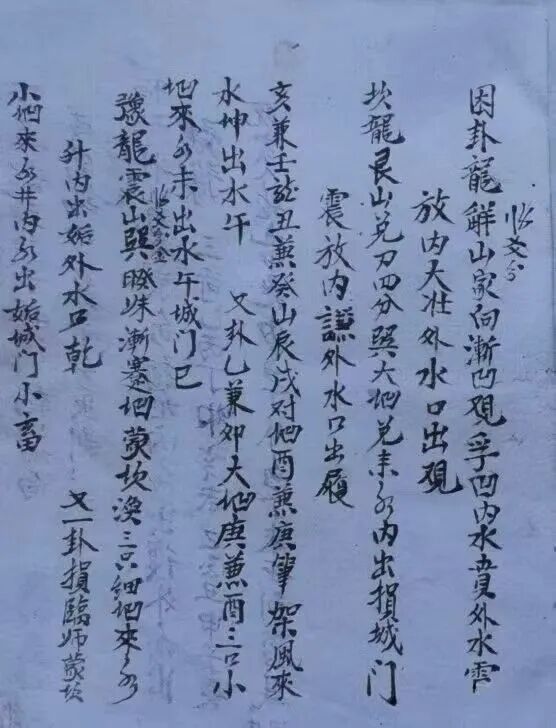 困卦龍解山家向漸凹覌孚凹内水賁外水
放内大壮外水口出覌
坎龍艮山兑刀四分巽大地兑未水内出損城门
震放内謙外水口出履
亥兼壬龍丑兼癸山辰戌对地酉兼庚筆架風來
水坤出水午 又卦乙兼卯大地庚兼酉三口小
地來水未出水午城门巳
豫龍震山巽睽 漸蹇地蒙坎渙三只細地來水
升内出姤外水口乾 又一卦損臨师蒙坎
小地來水井内水出姤城门小畜